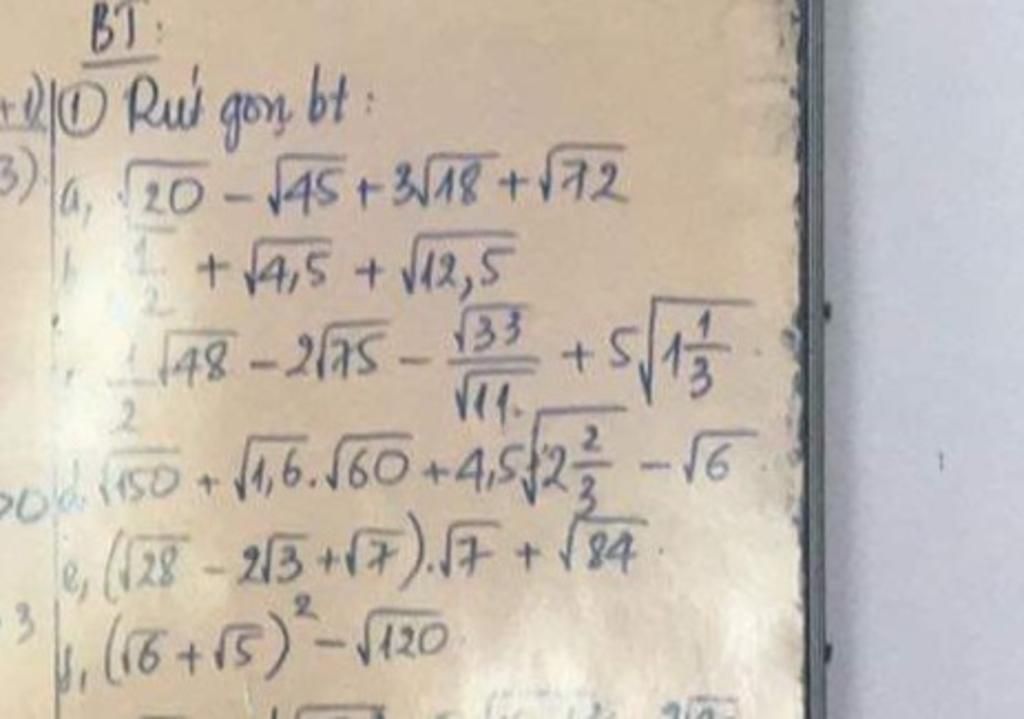 BT:
+1) ① Rút gọn bt:
3) a, √20 - √45 + 3√18 + √72
1/2 + √4,5 + √12,5
1/2 √48 - 2√75 - √33/√11 + 5√(1 1/3)
d, √150 + √1,6.√60 + 4,5√(2 2/3) - √6
e, (√28 - 2√3 + √7).√7 + √84
3 f, (√6 + √5)² - √120